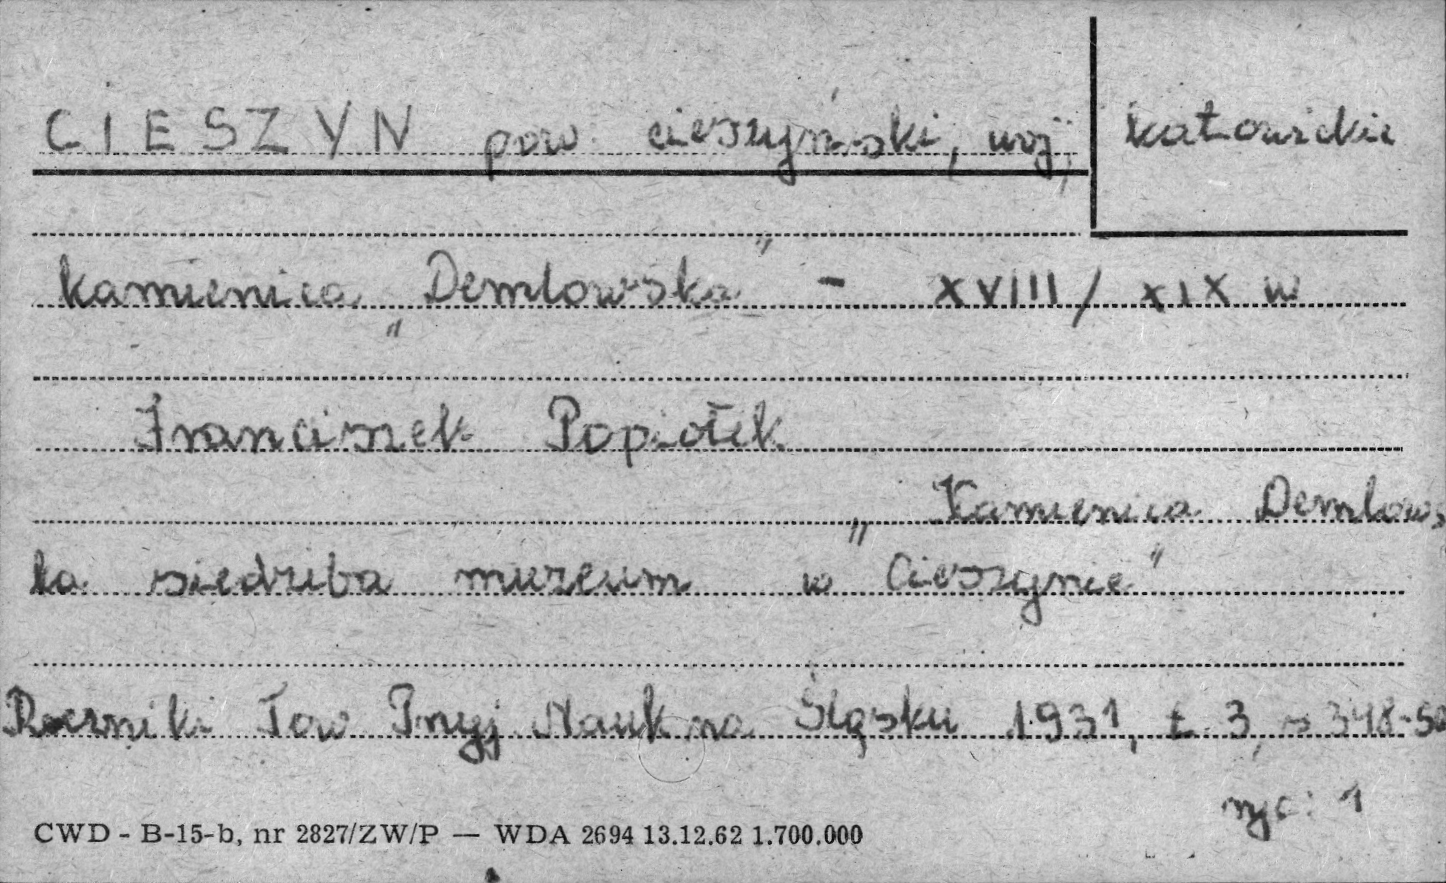 CIESZYN pow. cieszyński, woj, katowickie
kamienica „Demlowska" - XVIII/XIX w
Franciszek Popiołek
„Kamienica Demlows
ka siedziba muzeum w Cieszynie"
Roczniki Tow Przyj Nauk na Śląsku 1931, t. 3, s 348-50
ryc: 1
CWD - B-15-b, nr 2827/ZW/P — WDA 2694 13.12.62 1.700.000